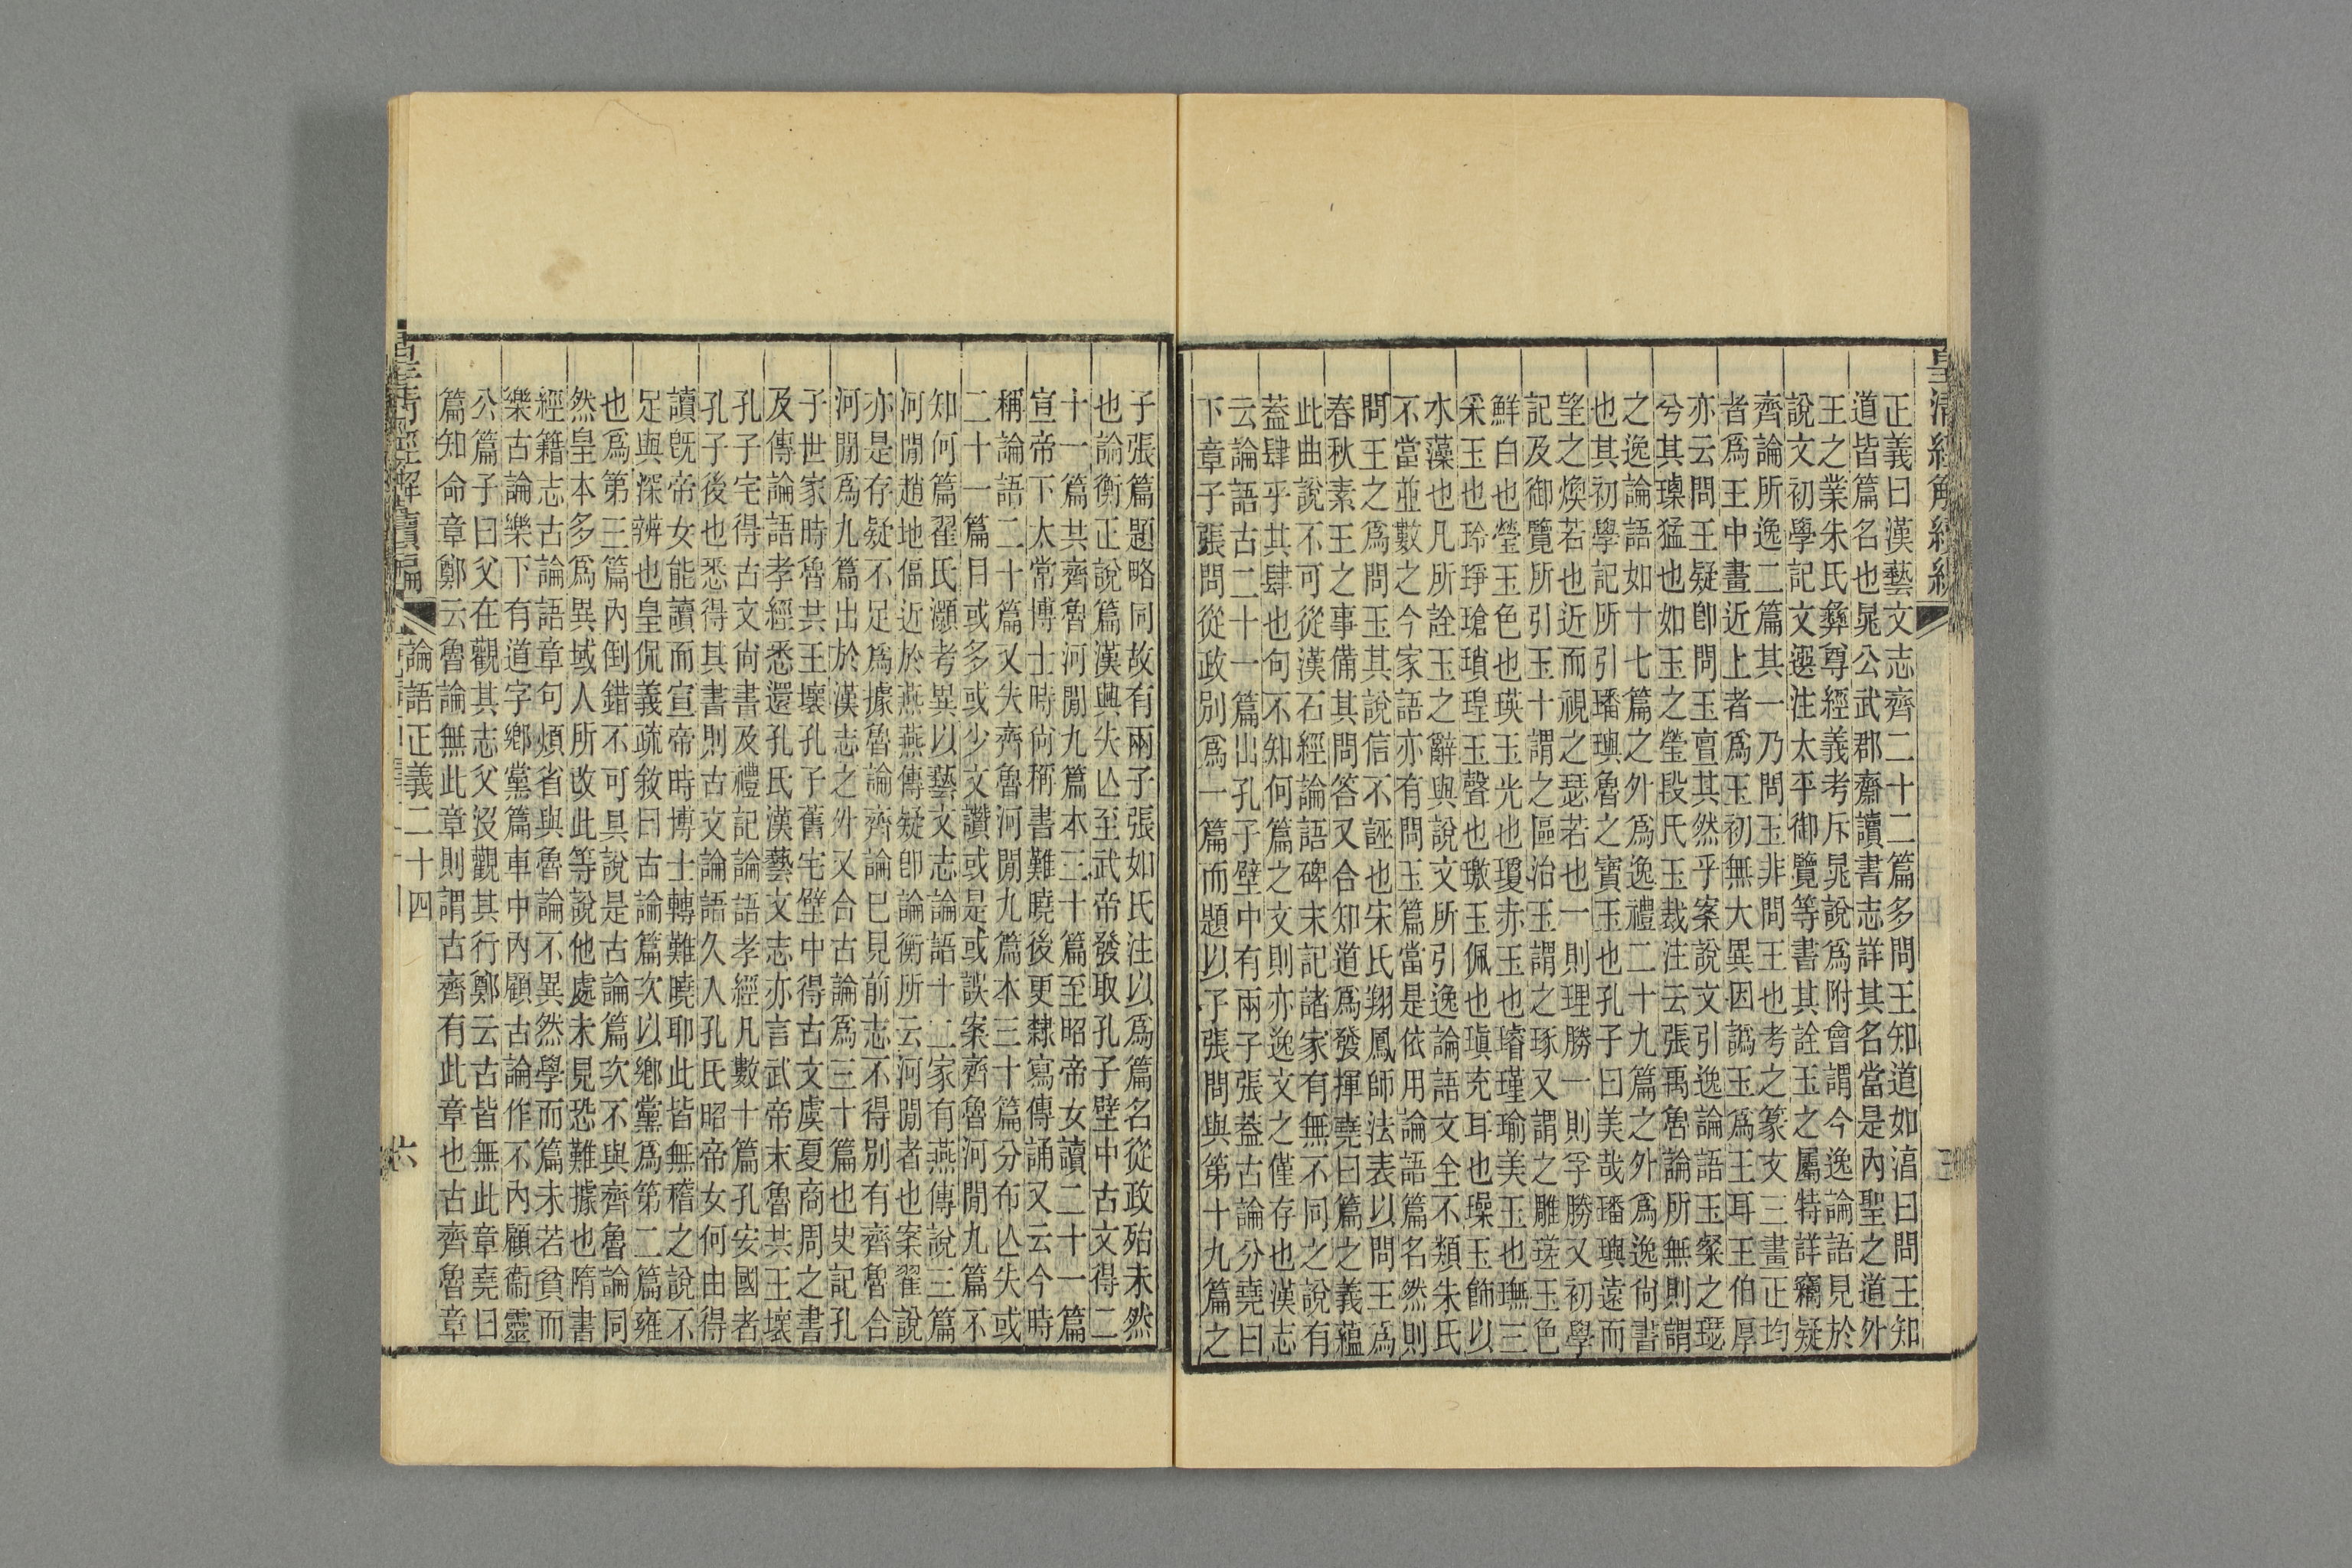 皇清經解續編
正義曰漢藝文志齊二十二篇多問王知道如淳曰問王知
道皆篇名也晁公武郡齋讀書志詳其名當是內聖之道外
王之業朱氏彝尊經義考斥晁說爲附會謂今逸論語見於
說文初學記文選注太平御覽等書其詮玉之屬特詳竊疑
齊論所逸二篇其一乃問玉非問王也考之篆文三畫正均
者爲王中畫近上者爲玉初無大異因譌玉爲王耳王伯厚
亦云問王疑卽問玉亶其然乎案說文引逸論語玉粲之璱
兮其瑮猛也如玉之瑩段氏玉裁注云張禹魯論所無則謂
之逸論語如十七篇之外爲逸禮二十九篇之外爲逸尙書
也其初學記所引璠璵魯之寶玉也孔子曰美哉璠璵遠而
望之煥若也近而視之瑟若也一則理勝一則孚勝又初學
記及御覽所引玉十謂之區治玉謂之琢又謂之雕瑳玉色
鮮白也瑩玉色也瑛玉光也瓊赤玉也璿瑾瑜美玉也璑三
采玉也玲琤瑲瑣瑝玉聲也璬玉佩也瑱充耳也璪玉飾以
水藻也凡所詮玉之辭與說文所引逸論語文全不類朱氏
不當並數之今家語亦有問玉篇當是依用論語篇名然則
問王之爲問玉其說信不誣也宋氏翔鳳師法表以問王爲
春秋素王之事備其問答又合知道爲發揮堯曰篇之義蘊
此曲說不可從漢石經論語碑末記諸家有無不同之說有
葢肆乎其肆也句不知何篇之文則亦逸文之僅存也漢志
云論語古二十一篇出孔子壁中有兩子張葢古論分堯曰
下章子張問從政別爲一篇而題以子張問與第十九篇之
子張篇題略同故有兩子張如氏注以爲篇名從政殆未然
也論衡正說篇漢興失亾至武帝發取孔子壁中古文得二
十一篇其齊魯河閒九篇本三十篇至昭帝女讀二十一篇
宣帝下太常博士時尙稱書難曉後更隸寫傳誦又云今時
稱論語二十篇又失齊魯河閒九篇本三十篇分布亾失或
二十一篇目或多或少文讚或是或誤案齊魯河閒九篇不
知何篇翟氏灝考異以藝文志論語十二家有燕傳說三篇
河閒趙地偪近於燕燕傳疑卽論衡所云河閒者也案翟說
亦是存疑不足爲據魯論齊論巳見前志不得別有齊魯合
河閒爲九篇出於漢志之外又合古論爲三十篇也史記孔
子世家時魯共王壞孔子舊宅壁中得古文虞夏商周之書
及傳論語孝經悉還孔氏漢藝文志亦言武帝末魯共王壞
孔子宅得古文尙書及禮記論語孝經凡數十篇孔安國者
孔子後也悉得其書則古文論語久入孔氏昭帝女何由得
讀旣帝女能讀而宣帝時博士轉難曉耶此皆無稽之說不
足與深辨也皇侃義疏敘曰古論篇次以鄕黨爲第二篇雍
也爲第三篇內倒錯不可具說是古論篇次不與齊魯論同
然皇本多爲異域人所改此等說他處未見恐難據也隋書
經籍志古論語章句煩省與魯論不異然學而篇未若貧而
樂古論樂下有道字鄕黨篇車中內顧古論作不內顧衞靈
公篇子曰父在觀其志父沒觀其行鄭云古皆無此章堯曰
篇知命章鄭云魯論無此章則謂古齊有此章也古齊魯章
皇清經解續編
論語正義二十四
六